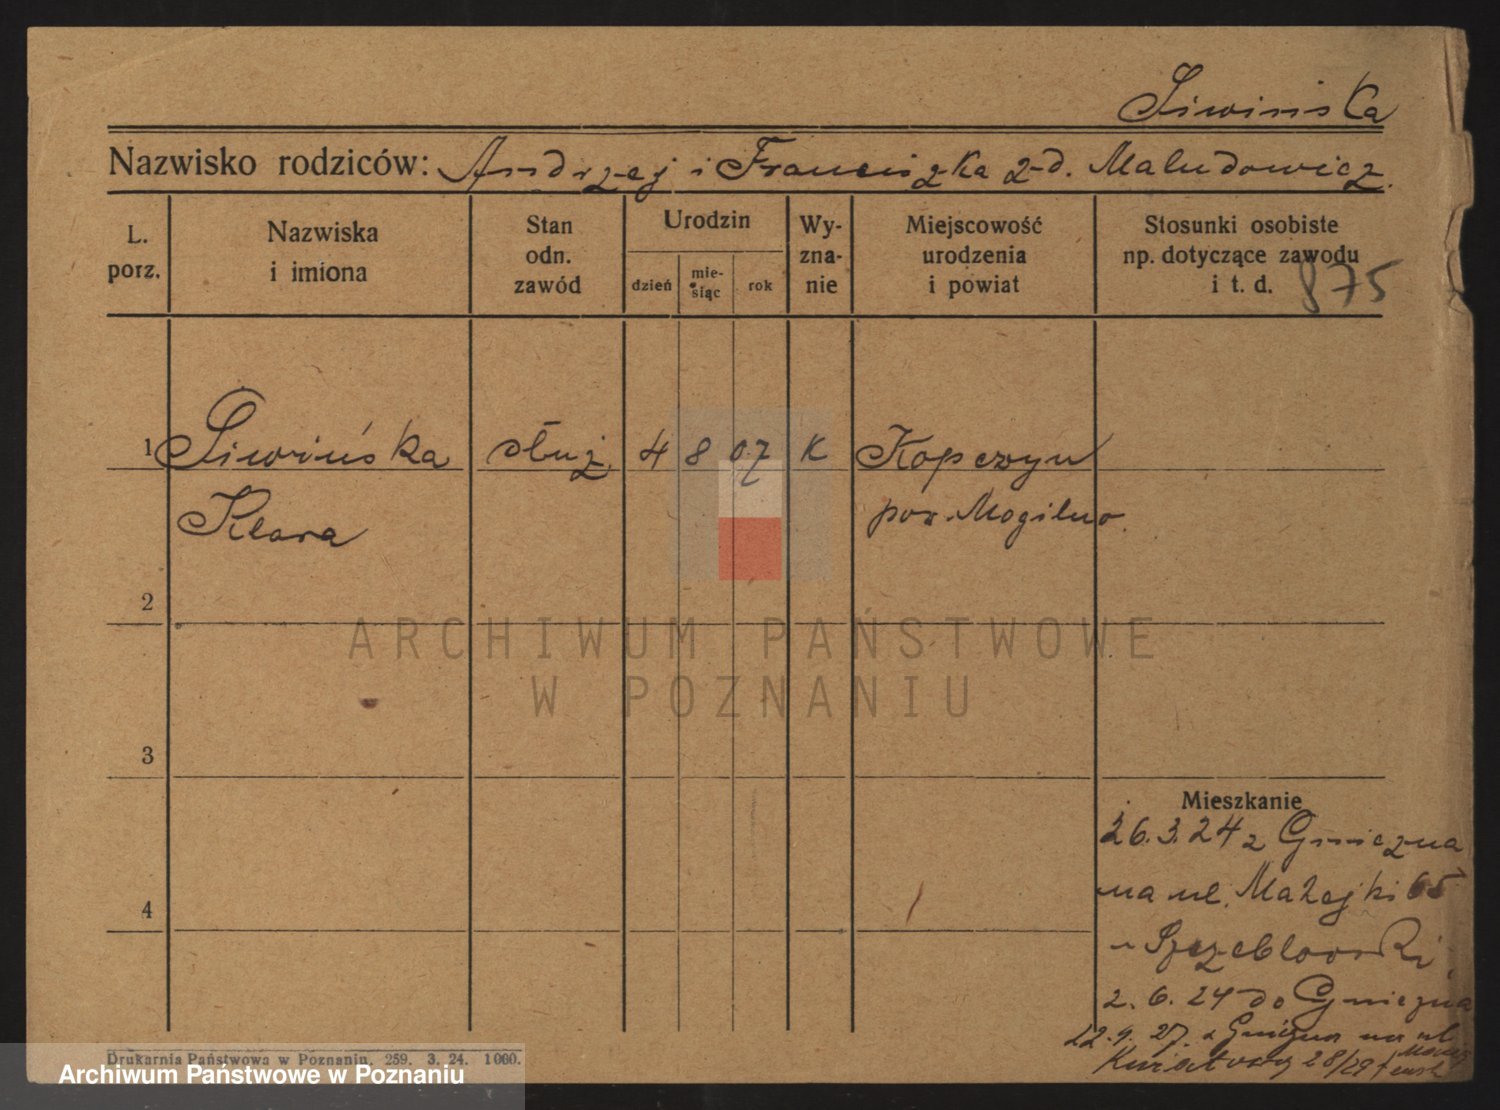 Siwińska
Nazwisko rodziców: Andrzej i Franciszka z d. Maludowicz.
L. porz.
Nazwiska i imiona
Stan odn. zawód
Urodzin
dzień
mie-siąc
rok
Wy-zna-nie
Miejscowość urodzenia i powiat
Stosunki osobiste np. dotyczące zawodu i t. d.
875
1 Siwińska służ 4 8 07 K Kopczyn
Klara pow. Mogilno
2
3
4
Mieszkanie
26. 3. 24 z Gniezna
na ul. Małejki 65
2. 6. 24 do Gniezna
22. 9. 27. z Gniezna na ul.
Kwiatową 28/29
ARCHIWUM PAŃSTWOWE
W POZNANIU
Drukarnia Państwowa w Poznaniu. 259. 3. 24. 1000.
Archiwum Państwowe w Poznaniu